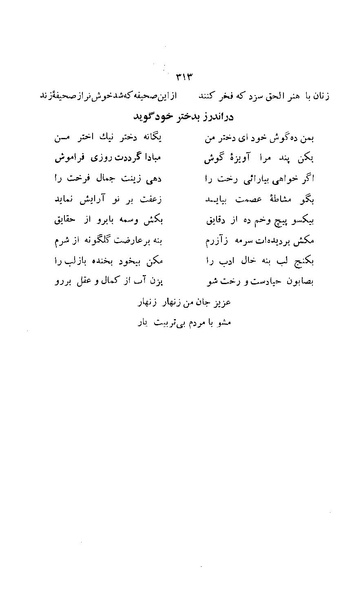 ۳۱۳
زنان با هنر الحق سزد که فخر کنند ازاین صحیفه که شد خوش‌تر از صحیفهٔ زند
در اندرز بدختر خود گوید
بمن ده گوش خود ای دختر من یگانه دختر نیك اختر من
بکن پند مرا آویزهٔ گوش مبادا گرددت روزی فراموش
اگر خواهی بیارائی رخت را دهی زینت جمال فرخت را
بگو مشاطهٔ عصمت بیایـد زعفت بر تو آرایش نماید
بیکسو پیچ وخم ده از دقایق بکش وسمه بابرو از حقایق
مکش بردیده‌ات سرمه زآزرم بنه برعارضت گلگونه از شرم
بکنج لب بنه خال ادب را مکن بیخود بخنده بازلب را
بصابون حیادست و رخت شو بزن آب از کمال و عقل بررو
عزیز جان من زنهار زنهار
مشو با مردم بی‌تربیت یار